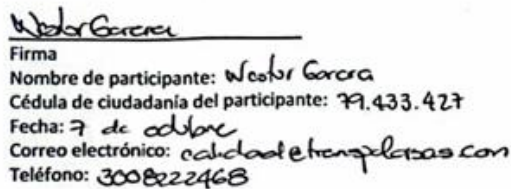 Firma
Nombre de participante: Nestor Garcera
Cédula de ciudadanía del participante: 79.433.427
Fecha: 7 de octubre
Correo electrónico:
Teléfono: 3008222468